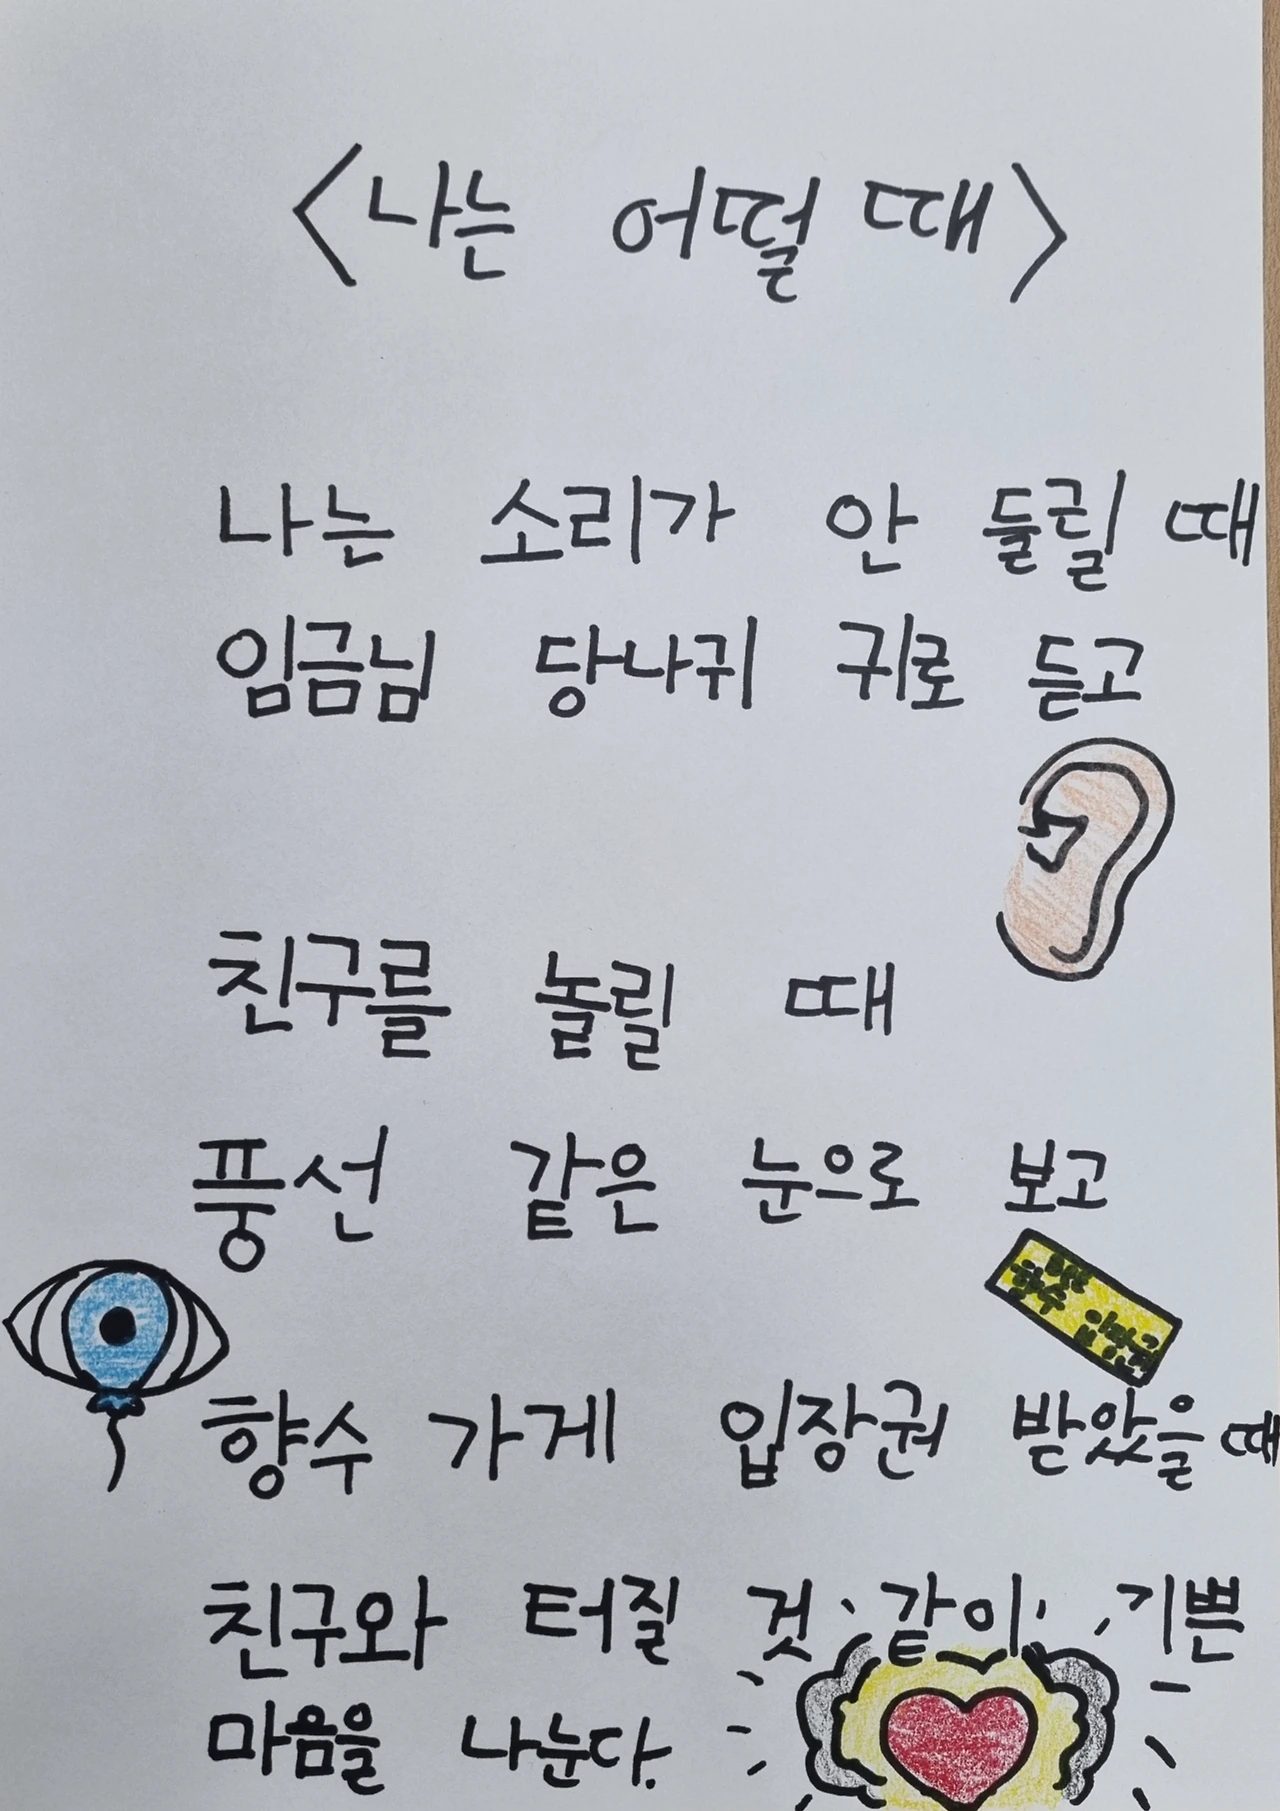 <나는 어떨 때>
나는 소리가 안 들릴 때
임금님 당나귀 귀로 듣고
친구를 놀릴 때
풍선 같은 눈으로 보고
향수
향수 가게 입장권 받았을 때
친구와 터질 것 같이 기쁜
마음을 나눈다.